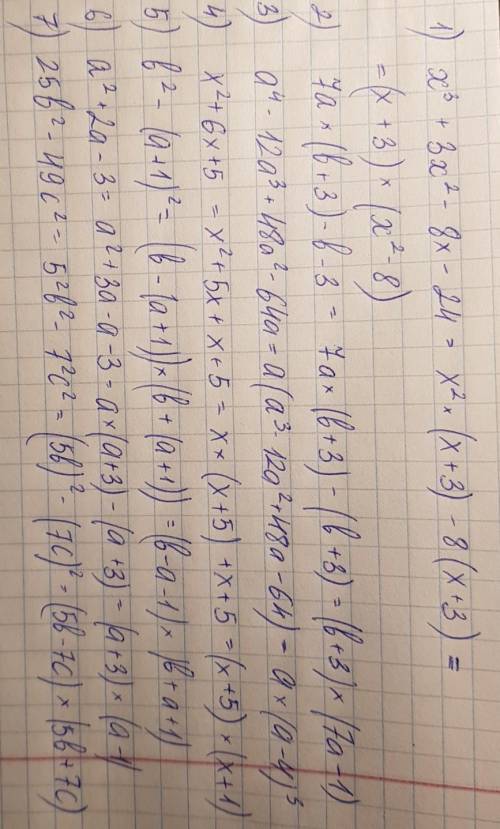 1) x³ + 3x² - 8x - 24 = x² × (x+3) - 8(x+3) =
= (x+3) × (x²-8)
2) 7a × (b+3) - b - 3 = 7a × (b+3) - (b+3) = (b+3) × (7a-1)
3) a⁴ - 12a³ + 48a² - 64a = a(a³ - 12a² + 48a - 64) = a × (a-4)³
4) x² + 6x + 5 = x² + 5x + x + 5 = x × (x+5) + x + 5 = (x+5) × (x+1)
5) b² - (a+1)² = (b - (a+1)) × (b + (a+1)) = (b-a-1) × (b+a+1)
6) a² + 2a - 3 = a² + 3a - a - 3 = a × (a+3) - (a+3) = (a+3) × (a-1)
7) 25b² - 49c² = 5²b² - 7²c² = (5b)² - (7c)² = (5b-7c) × (5b+7c)